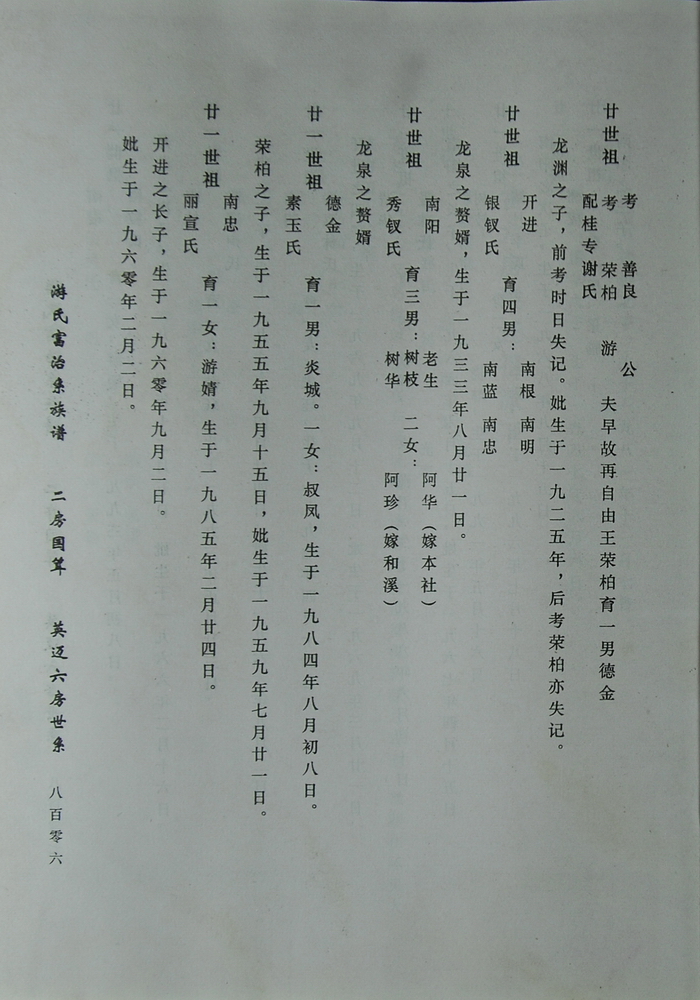 廿世祖 考 善良 公
考 荣柏 游 夫早故再自由王荣柏育一男德金
配桂专谢氏
龙渊之子，前考时日失记。妣生于一九二五年，后考荣柏亦失记。
廿世祖 开进 育四男： 南根 南明
银钗氏 南蓝 南忠
龙泉之赘婿，生于一九三三年八月廿一日。
廿世祖 南阳 育三男： 老生 树枝 树华 二女： 阿华（嫁本社）
秀钗氏 阿珍（嫁和溪）
龙泉之赘婿
廿一世祖 德金 育一男：炎城。一女：叔凤，生于一九八四年八月初八日。
素玉氏
荣柏之子，生于一九五五年九月十五日，妣生于一九五九年七月廿一日。
廿一世祖 南忠 育一女：游婧，生于一九八五年二月廿四日。
丽宣氏
开进之长子，生于一九六零年九月二日。
妣生于一九六零年二月二日。
游氏富治系族谱 二房国葺 英迈六房世系 八百零六